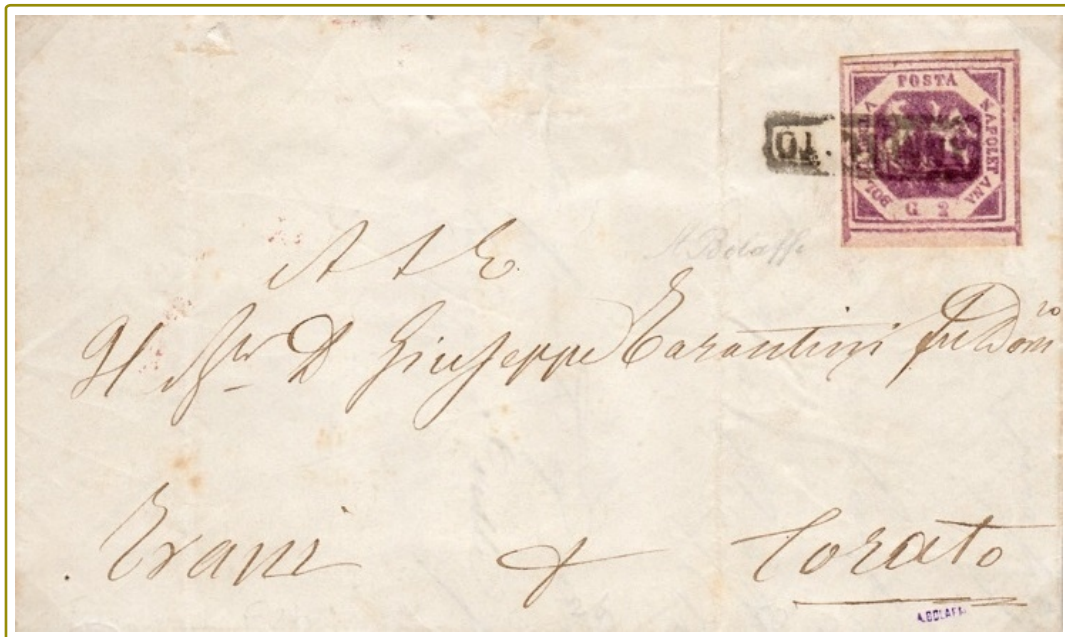 POSTA
NAPOLETANA
BOLLO DELLA
G 2
A. Bolaffi
A S E
Il Sigr D Giuseppe Tarantini fu Domco
Trani p Corato
A.BOLAFFI